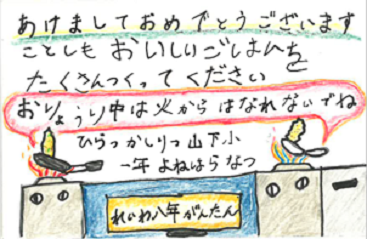 あけましておめでとうございます
ことしもおいしいごはんを
たくさんつくってください
おりょうり中は火からはなれないでね
ひらつかしりつ山下小
一年 よねはらなつ
れいわ八年がんたん